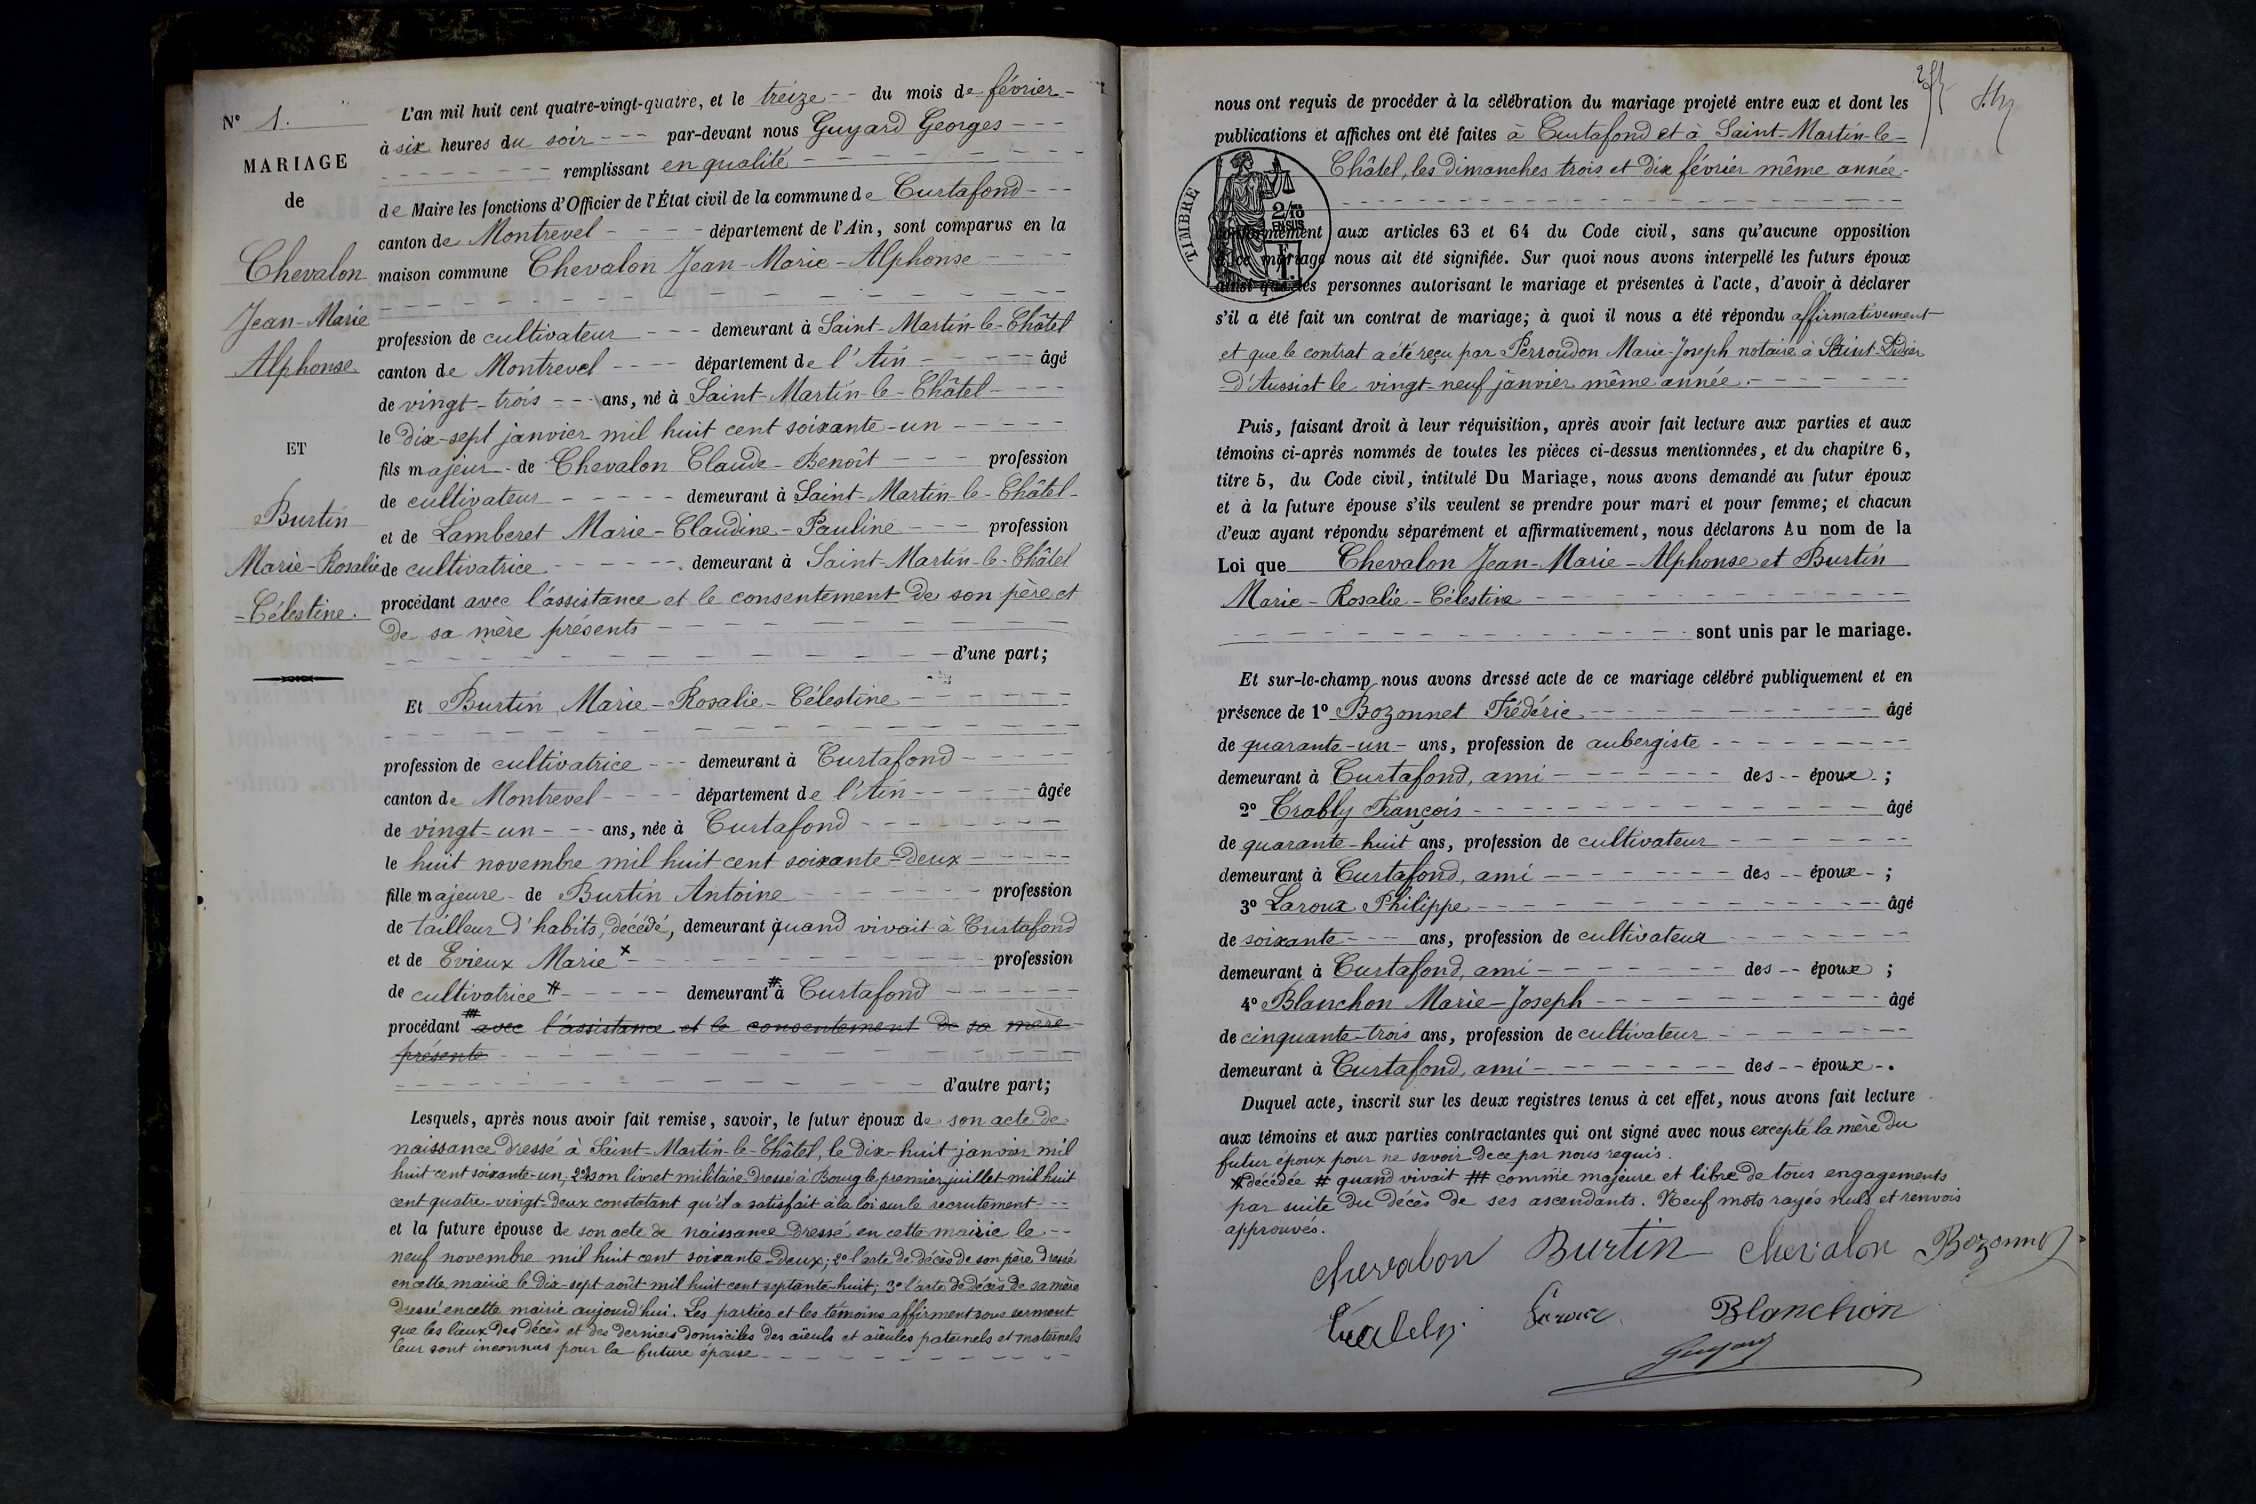 N° 1.
MARIAGE
de
Chevalon
Jean-Marie
Alphonse
ET
Burtin
Marie-Rosalie
-Célestine.
L'an mil huit cent quatre-vingt-quatre, et le treize du mois de février
à six heures du soir par-devant nous Guyard Georges
remplissant en qualité
de Maire les fonctions d'Officier de l'État civil de la commune de Curtafond
canton de Montrevel département de l'Ain, sont comparus en la
maison commune Chevalon Jean-Marie-Alphonse
profession de cultivateur demeurant à Saint-Martin-le-Châtel
canton de Montrevel département de l'Ain âgé
de vingt-trois ans, né à Saint-Martin-le-Châtel
le dix-sept janvier mil huit cent soixante-un
fils majeur de Chevalon Claude-Benoît profession
de cultivateur demeurant à Saint-Martin-le-Châtel
et de Lamberet Marie-Claudine-Pauline profession
de cultivatrice demeurant à Saint-Martin-le-Châtel
procédant avec l'assistance et le consentement de son père et
de sa mère présents
d'une part;
Et Burtin Marie-Rosalie-Célestine
profession de cultivatrice demeurant à Curtafond
canton de Montrevel département de l'Ain âgée
de vingt-un ans, née à Curtafond
le huit novembre mil huit cent soixante-deux
fille majeure de Burtin Antoine profession
de tailleur d'habits, décédé, demeurant quand vivait à Curtafond
et de Evieux Marie x profession
de cultivatrice # demeurant # à Curtafond
procédant # avec l'assistance et le consentement de sa mère
présente
d'autre part;
Lesquels, après nous avoir fait remise, savoir, le futur époux de son acte de
naissance dressé à Saint-Martin-le-Châtel, le dix-huit janvier mil
huit cent soixante-un, 2° son livret militaire dressé à Bourg le premier juillet mil huit
cent quatre-vingt-deux constatant qu'il a satisfait à la loi sur le recrutement
et la future épouse de son acte de naissance dressé en cette mairie le
neuf novembre mil huit cent soixante-deux; 2° l'acte de décès de son père dressé
en cette mairie le dix-sept août mil huit cent septante-huit; 3° l'acte de décès de sa mère
dressé en cette mairie aujourd'hui. Les parties et les témoins affirment sous serment
que les lieux des décès et des derniers domiciles des aïeuls et aïeules paternels et maternels
leur sont inconnus pour la future épouse
nous ont requis de procéder à la célébration du mariage projeté entre eux et dont les
publications et affiches ont été faites à Curtafond et à Saint-Martin-le-
Châtel, les dimanches trois et dix février même année.
TIMBRE
2/10
EN SUS
conformément aux articles 63 et 64 du Code civil, sans qu'aucune opposition
à ce mariage nous ait été signifiée. Sur quoi nous avons interpellé les futurs époux
ainsi que les personnes autorisant le mariage et présentes à l'acte, d'avoir à déclarer
s'il a été fait un contrat de mariage; à quoi il nous a été répondu affirmativement
et que le contrat a été reçu par Perroudon Marie-Joseph notaire à Saint-Didier
d'Aussiat le vingt-neuf janvier même année.
Puis, faisant droit à leur réquisition, après avoir fait lecture aux parties et aux
témoins ci-après nommés de toutes les pièces ci-dessus mentionnées, et du chapitre 6,
titre 5, du Code civil, intitulé Du Mariage, nous avons demandé au futur époux
et à la future épouse s'ils veulent se prendre pour mari et pour femme; et chacun
d'eux ayant répondu séparément et affirmativement, nous déclarons Au nom de la
Loi que Chevalon Jean-Marie-Alphonse et Burtin
Marie-Rosalie-Célestine
sont unis par le mariage.
Et sur-le-champ nous avons dressé acte de ce mariage célébré publiquement et en
présence de 1° Bozonnet Frédéric âgé
de quarante-un ans, profession de aubergiste
demeurant à Curtafond, ami des époux;
2° Trably François âgé
de quarante-huit ans, profession de cultivateur
demeurant à Curtafond, ami des époux;
3° Laroux Philippe âgé
de soixante ans, profession de cultivateur
demeurant à Curtafond, ami des époux;
4° Blanchon Marie-Joseph âgé
de cinquante-trois ans, profession de cultivateur
demeurant à Curtafond, ami des époux.
Duquel acte, inscrit sur les deux registres tenus à cet effet, nous avons fait lecture
aux témoins et aux parties contractantes qui ont signé avec nous excepté la mère du
futur époux pour ne savoir de ce par nous requis.
x décédée # quand vivait # comme majeure et libre de tous engagements
par suite du décès de ses ascendants. Neuf mots rayés nuls et renvois
approuvés.
Chevalon Burtin Chevalon Bozonnet
Laroux Blanchon
Guyard